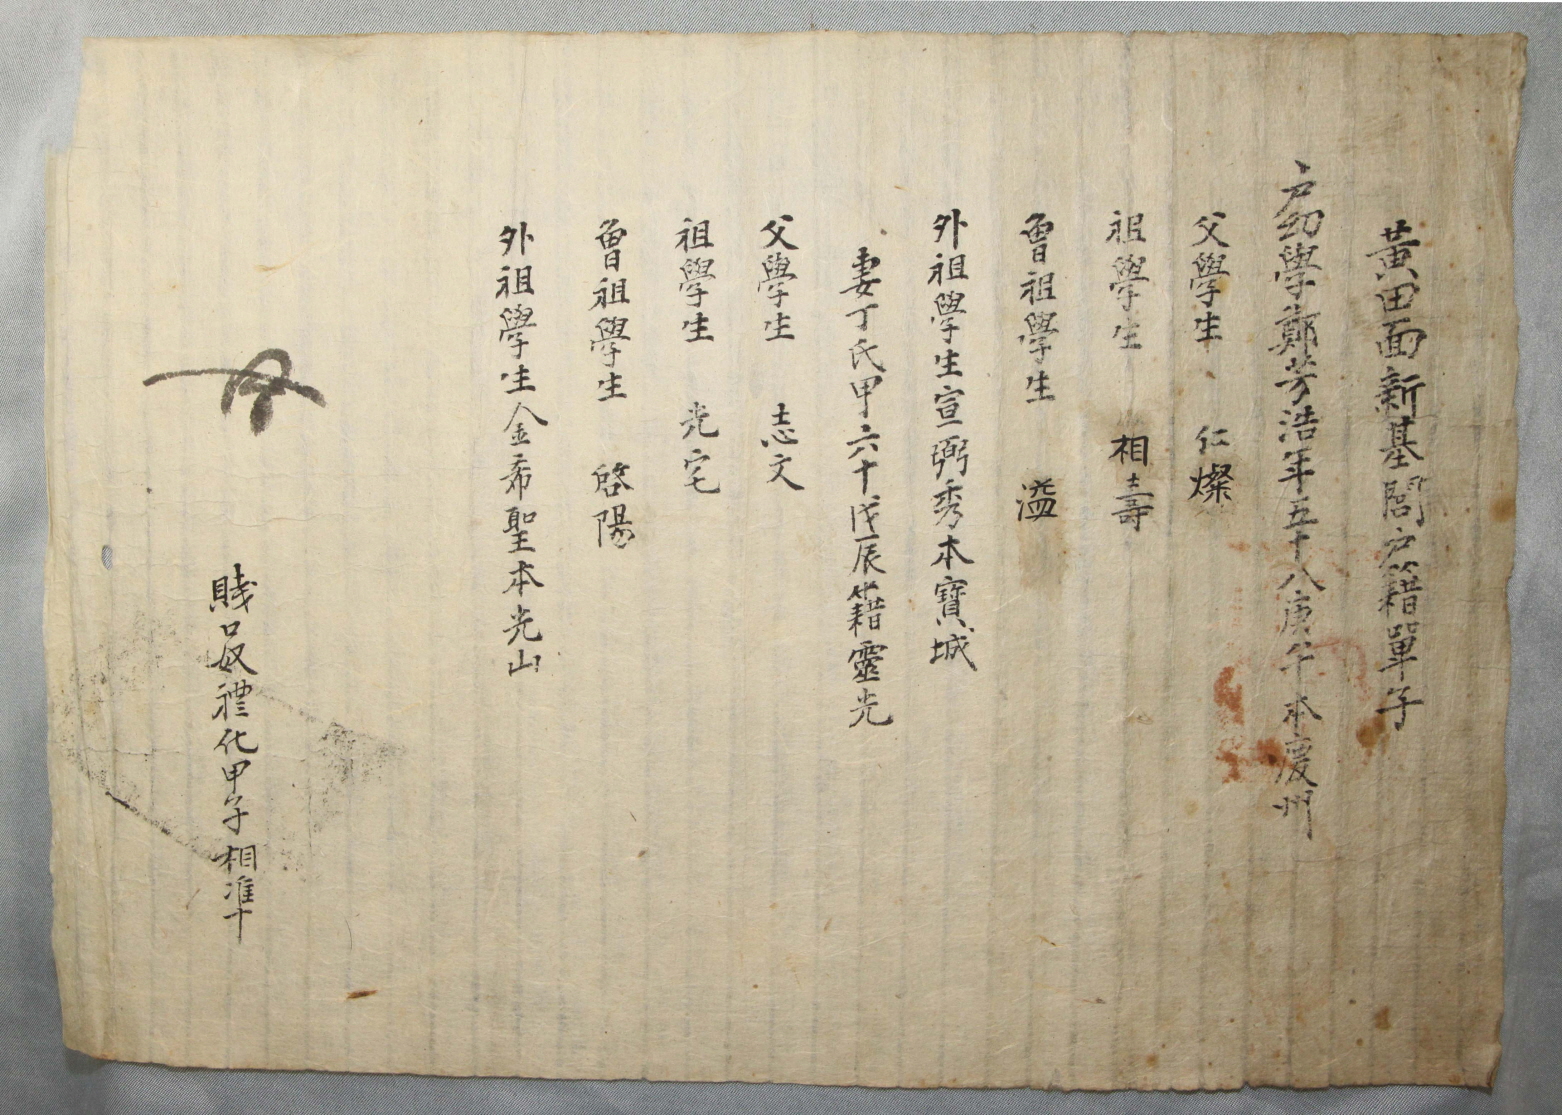 黃田面新基閭戶籍單子
戶幼學鄭芳浩年五十八庚午本慶州
父學生 仁燦
祖學生 相壽
曾祖學生 溢
外祖學生宣弼秀本寶城
妻丁氏甲六十戊辰籍靈光
父學生 志文
祖學生 光宅
曾祖學生 啓陽
外祖學生金希聖本光山
賤口奴禮化甲子相准十